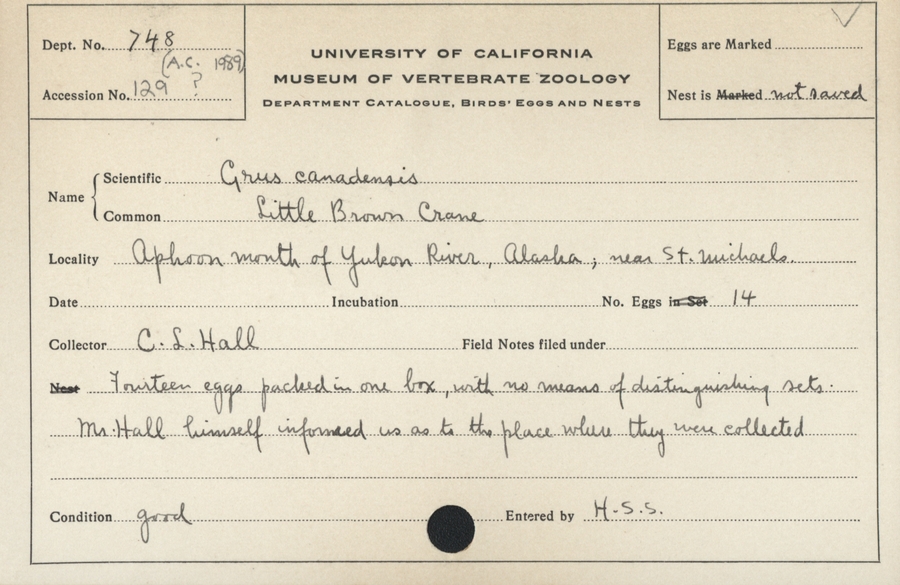 Dept. No. 748
(A.C. 1989)
Accession No. 129 ?
UNIVERSITY OF CALIFORNIA
MUSEUM OF VERTEBRATE ZOOLOGY
DEPARTMENT CATALOGUE, BIRDS' EGGS AND NESTS
Eggs are Marked
Nest is Marked not saved
Name
Scientific Grus canadensis
Common Little Brown Crane
Locality Aphoon mouth of Yukon River, Alaska; near St. Michaels.
Date Incubation No. Eggs in Set 14
Collector C. L. Hall Field Notes filed under
Nest Fourteen eggs packed in one box, with no means of distinguishing sets.
Mr. Hall himself informed us as to the place where they were collected
Condition good Entered by H.S.S.